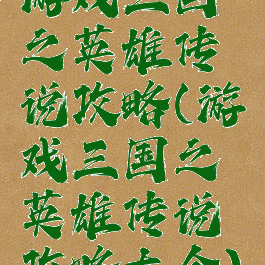 游戏三国
之英雄传
说攻略(游
戏三国之
英雄传说
攻略大全)